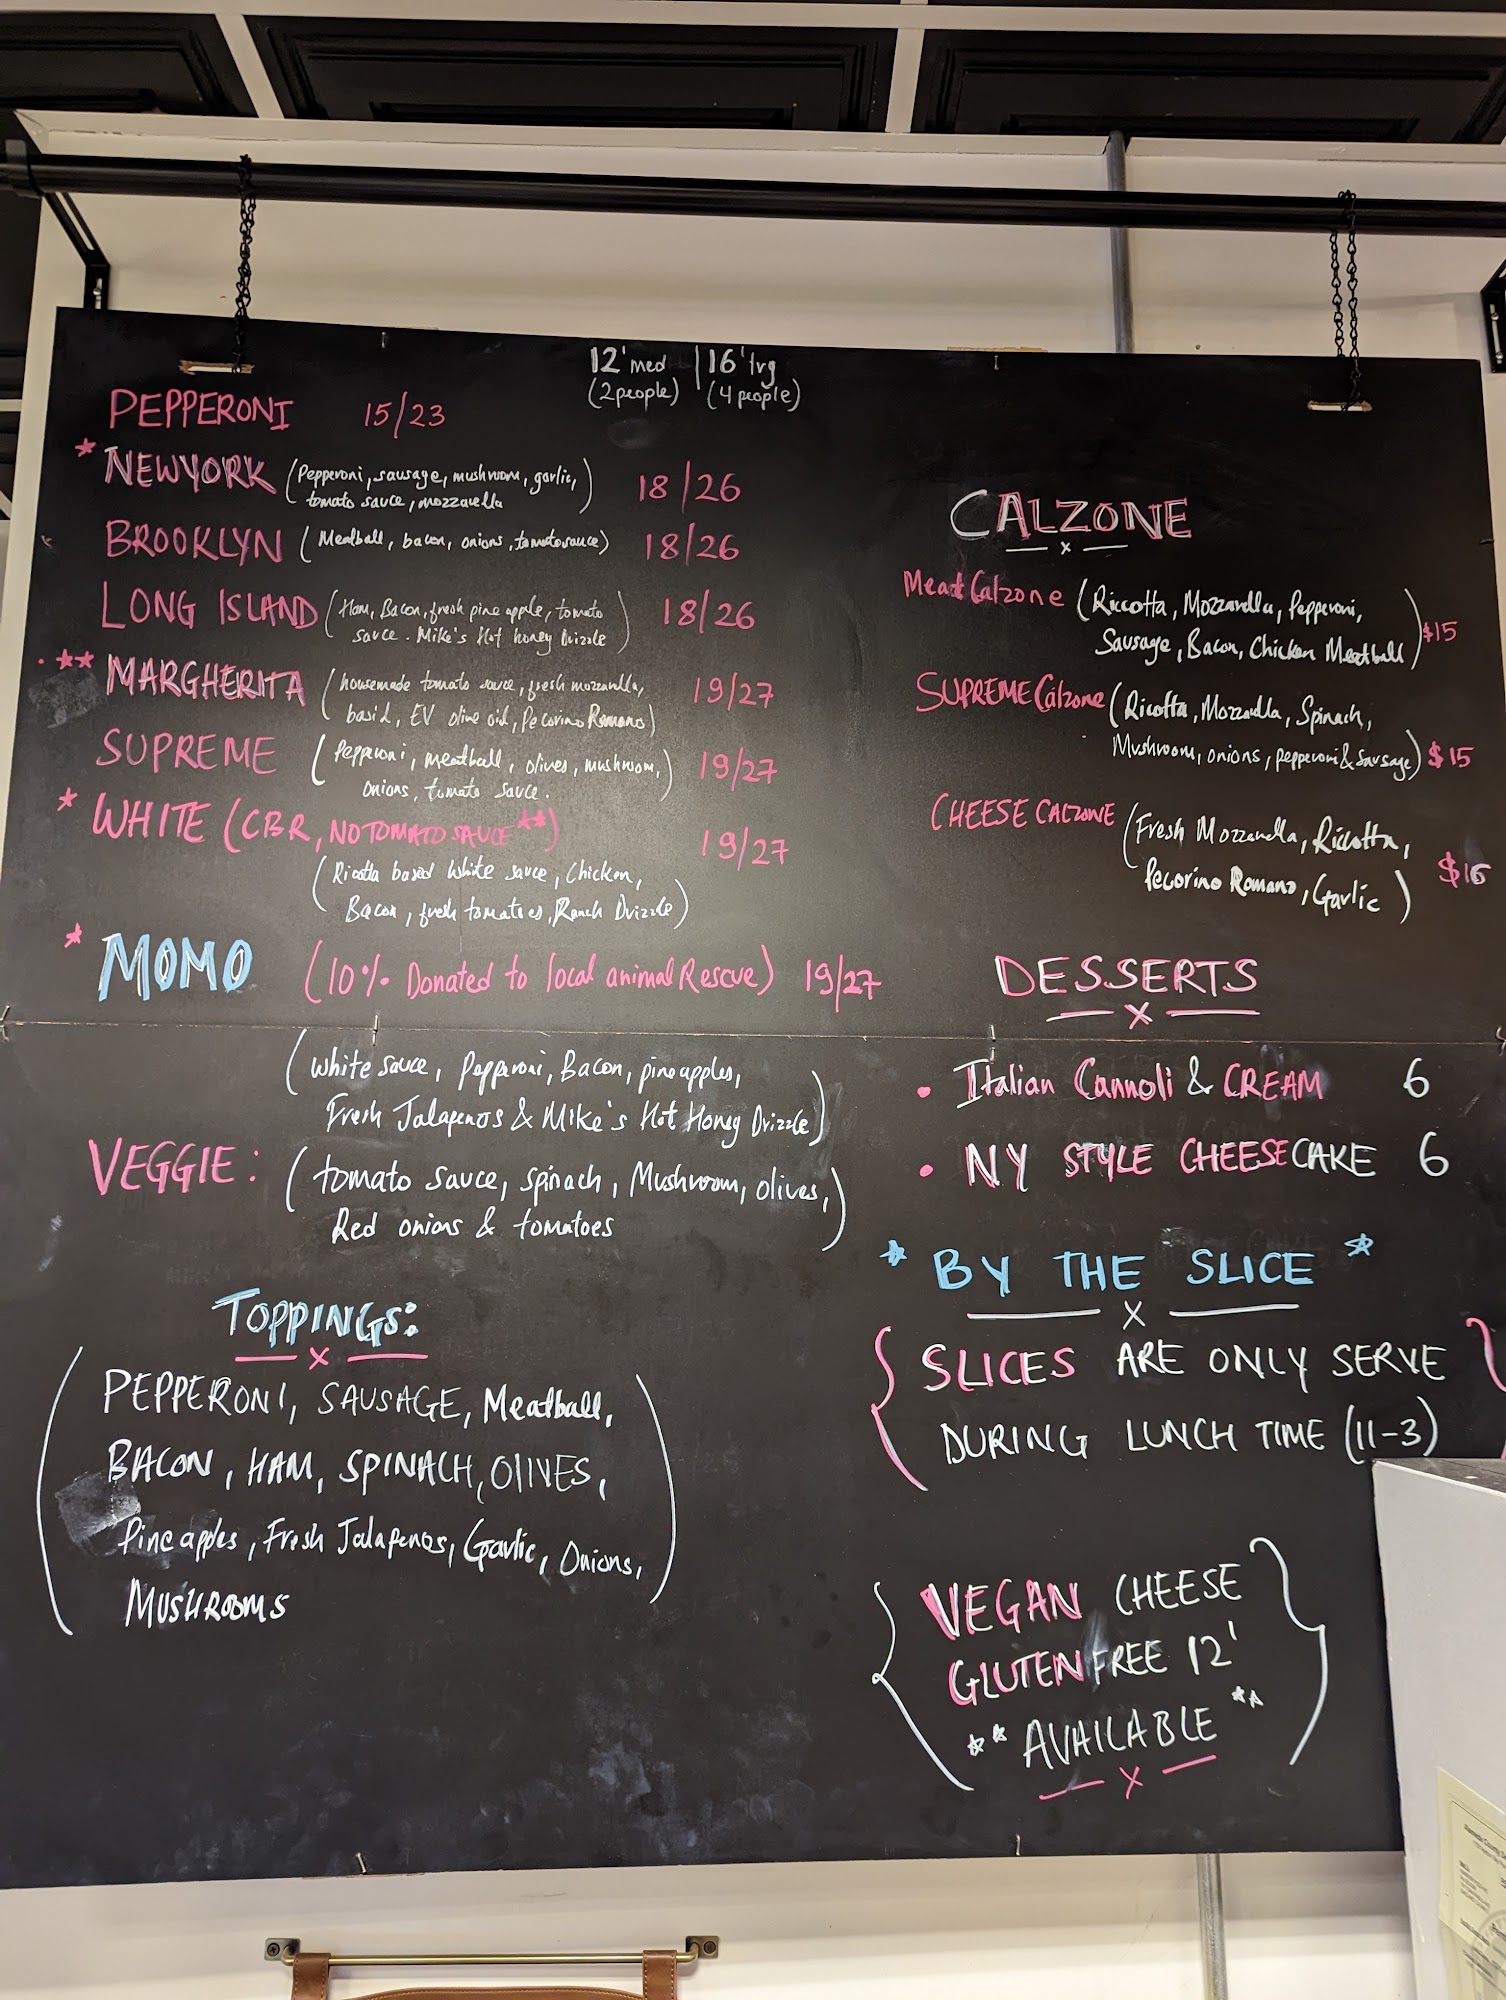 12' med | 16' lrg
(2 people) (4 people)
PEPPERONI 15/23
* NEWYORK (Pepperoni, sausage, mushroom, garlic, 18/26
tomato sauce, mozzarella)
BROOKLYN (Meatball, bacon, onions, tomato sauce) 18/26
LONG ISLAND (Ham, Bacon, fresh pine apple, tomato 18/26
sauce. Mike's Hot honey Drizzle)
** MARGHERITA (housemade tomato sauce, fresh mozzarella, 19/27
basil, EV olive oil, Pecorino Romano)
SUPREME (Pepperoni, meatball, olives, mushroom, 19/27
onions, tomato sauce.)
* WHITE (CBR, NO TOMATO SAUCE**) 19/27
(Ricotta based white sauce, Chicken,
Bacon, fresh tomatoes, Ranch Drizzle)
* MOMO (10% Donated to local animal Rescue) 19/27
(White sauce, Pepperoni, Bacon, pineapples,
Fresh Jalapenos & Mike's Hot Honey Drizzle)
VEGGIE: (tomato sauce, spinach, Mushroom, olives,
Red onions & tomatoes)
TOPPINGS:
x
(PEPPERONI, SAUSAGE, Meatball,
BACON, HAM, SPINACH, OLIVES,
Pineapples, Fresh Jalapenos, Garlic, Onions,
MUSHROOMS)
CALZONE
x
Meat Calzone (Riccotta, Mozzarella, Pepperoni,
Sausage, Bacon, Chicken Meatball) $15
SUPREME Calzone (Ricotta, Mozzarella, Spinach,
Mushroom, onions, pepperoni & sausage) $15
CHEESE CALZONE (Fresh Mozzarella, Riccotta,
Pecorino Romano, Garlic) $16
DESSERTS
x
• Italian Cannoli & CREAM 6
• NY STYLE CHEESECAKE 6
* BY THE SLICE *
x
{SLICES ARE ONLY SERVE
DURING LUNCH TIME (11-3)}
{VEGAN CHEESE
GLUTEN FREE 12'
** AVAILABLE **}
x